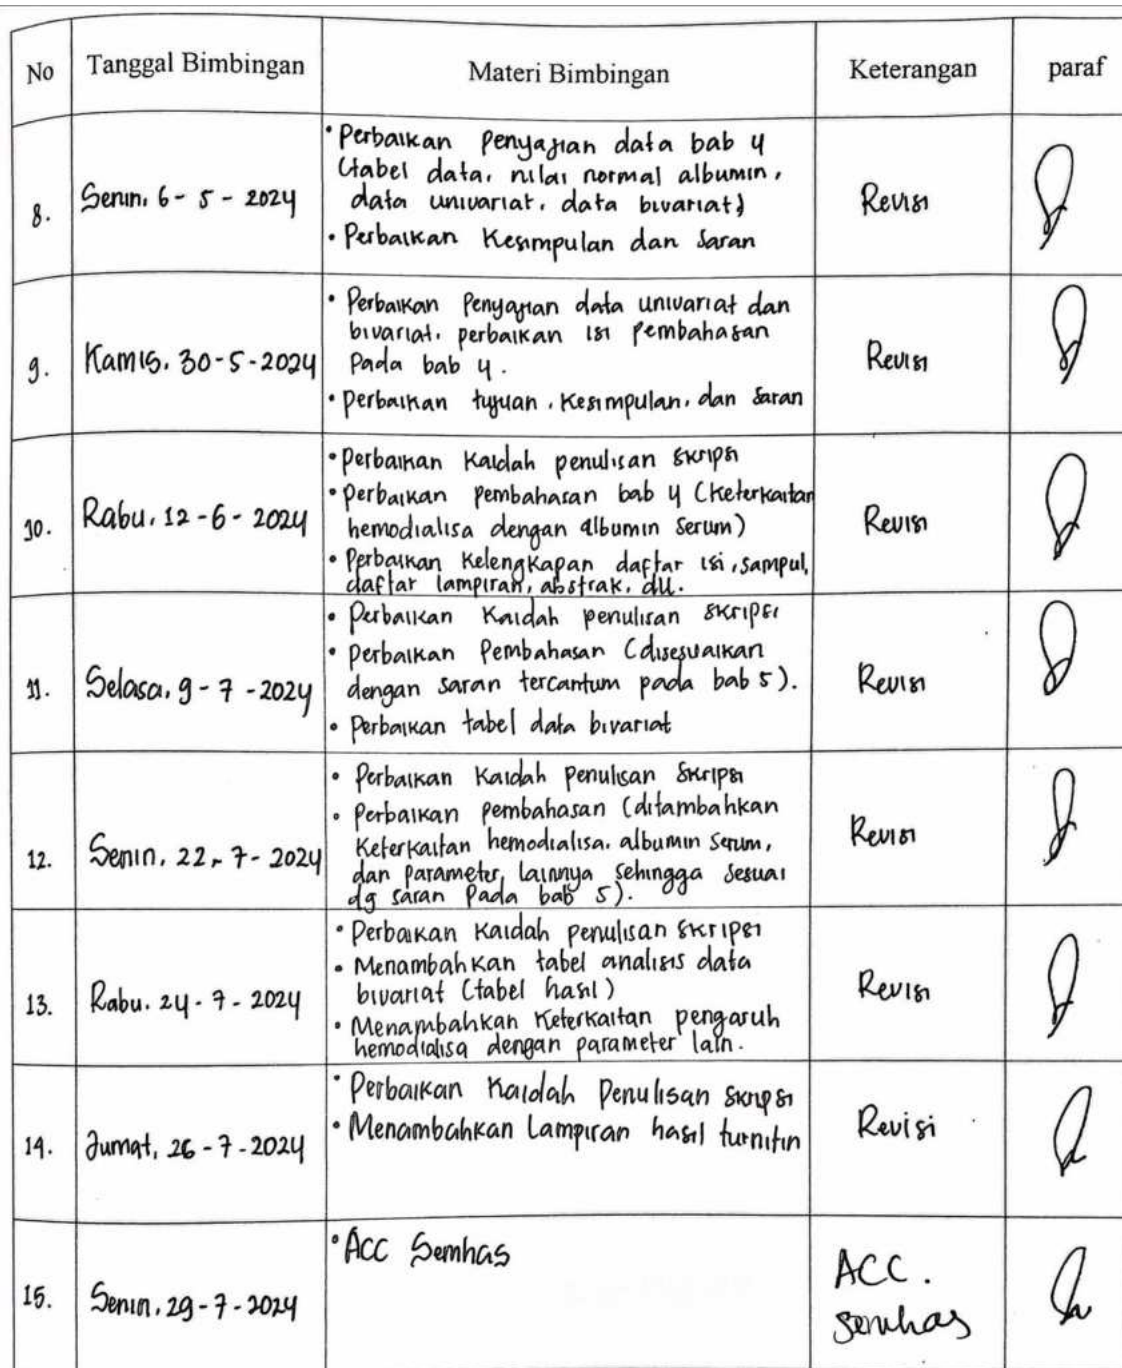 No Tanggal Bimbingan Materi Bimbingan Keterangan paraf
8. Senin, 6 - 5 - 2024 Revisi
• Perbaikan penyajian data bab 4
(tabel data, nilai normal albumin,
data univariat, data bivariat)
• Perbaikan Kesimpulan dan Saran
9. Kamis, 30-5-2024 Revisi
• Perbaikan Penyajian data univariat dan
bivariat, perbaikan isi Pembahasan
Pada bab 4.
• perbaikan tujuan, Kesimpulan, dan Saran
10. Rabu, 12-6-2024 Revisi
• perbaikan Kaidah penulisan skripsi
• perbaikan pembahasan bab 4 (Keterkaitan
hemodialisa dengan albumin Serum)
• Perbaikan Kelengkapan daftar isi, sampul,
daftar lampiran, abstrak, dll.
11. Selasa, 9 - 7 - 2024 Revisi
• Perbaikan Kaidah penulisan skripsi
• perbaikan Pembahasan (disesuaikan
dengan saran tercantum pada bab 5).
• Perbaikan tabel data bivariat
12. Senin, 22 - 7 - 2024 Revisi
• Perbaikan Kaidah Penulisan Skripsi
• Perbaikan pembahasan (ditambahkan
Keterkaitan hemodialisa, albumin Serum,
dan parameter lainnya sehingga Sesuai
dg saran Pada bab 5).
13. Rabu, 24 - 7 - 2024 Revisi
• Perbaikan Kaidah penulisan skripsi
• Menambahkan tabel analisis data
bivariat (tabel hasil)
• Menambahkan Keterkaitan pengaruh
hemodialisa dengan parameter lain.
14. Jumat, 26 - 7 - 2024 Revisi
• Perbaikan Kaidah Penulisan skripsi
• Menambahkan Lampiran hasil turnitin
15. Senin, 29 - 7 - 2024
• ACC Semhas
ACC.
semhas